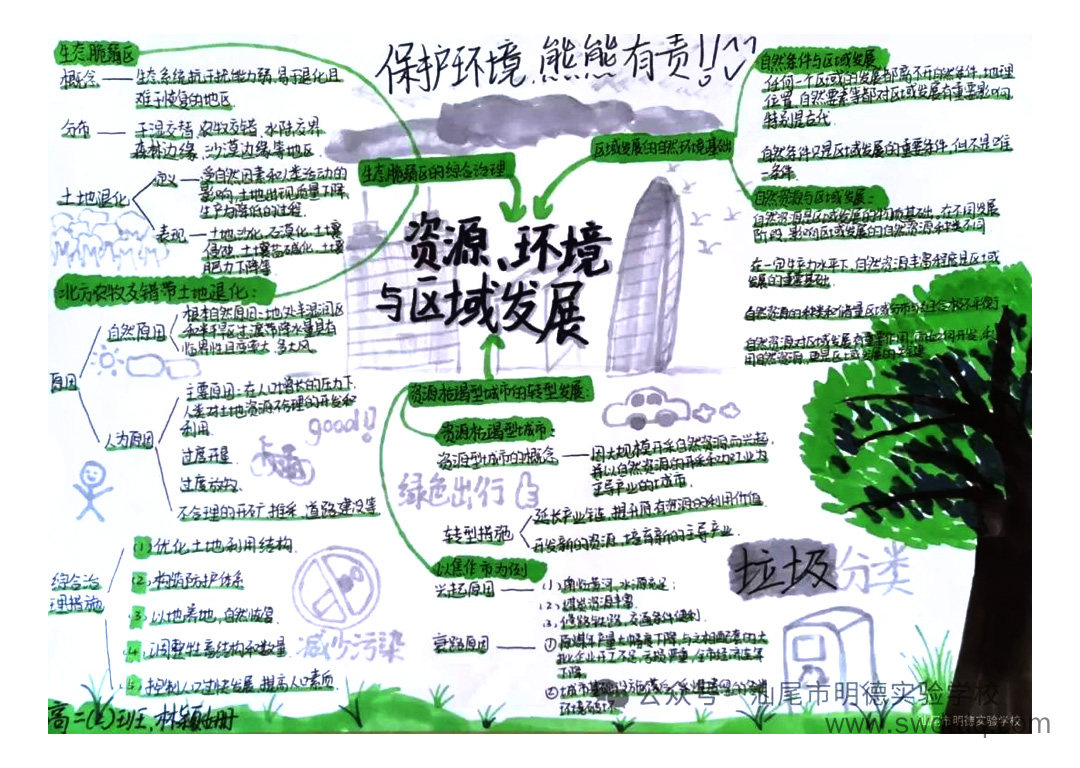 保护环境,熊熊有责!!
生态脆弱区
概念——生态系统抗干扰能力弱,易于退化且
难于恢复的地区
分布——干湿交替、农牧交错、水陆交界
森林边缘、沙漠边缘等地区.
土地退化
定义——受自然因素和人类活动的
影响,土地出现质量下降
生产力降低的过程.
表现——土地沙化、石漠化、土壤
侵蚀、土壤盐碱化、土壤
肥力下降等
生态脆弱区的综合治理
北方农牧交错带土地退化:
原因
自然原因
根本自然原因:地处半湿润区
临界性且变率大,多大风.
人为原因
主要原因:在人口增长的压力下,
人类对土地资源不合理的开发和
利用
过度开垦
过度放牧
不合理的开矿、推采、道路建设等
good!!
综合治
理措施
(1)优化土地利用结构.
(2)构筑防护体系
(3)以地养地,自然恢复.
(4)调整牲畜结构和数量
(5)控制人口过快发展,提高人口素质.
减少污染
资源、环境
与区域发展
区域发展的自然环境基础
自然条件与区域发展
任何一个区域的发展都离不开自然条件,地理
位置、自然要素等都对区域发展有重要影响,
特别是古代.
自然条件只是区域发展的重要条件,但不是唯
一条件.
自然资源与区域发展:
自然资源是区域发展的物质基础,在不同发展
阶段,影响区域发展的自然资源种类不同
在一定生产力水平下,自然资源丰富程度是区域
发展的重要基础.
自然资源的种类和储量区域分布的组合极不平衡
自然资源对区域发展有重要作用,
资源枯竭型城市的转型发展:
资源枯竭型城市:
资源型城市的概念——因大规模开采自然资源而兴起,
并以自然资源的开采和加工业为
主导产业的城市.
绿色出行
转型措施
延长产业链,提升原有资源的利用价值.
开发新的资源,培育新的主导产业.
以焦作市为例
兴起原因——(1)南临黄河,水源充足;
(2)煤炭资源丰富
(3)修路牧路,交通条件便利.
衰路原因——①原煤年产量大幅度下降,与之相配套的大
批企业开工不足,亏损严重,全市经济连年
下降.
环境破坏
垃圾分类
高二(2)班,林颖
公众号·汕尾市明德实验学校
汕尾市明德实验学校